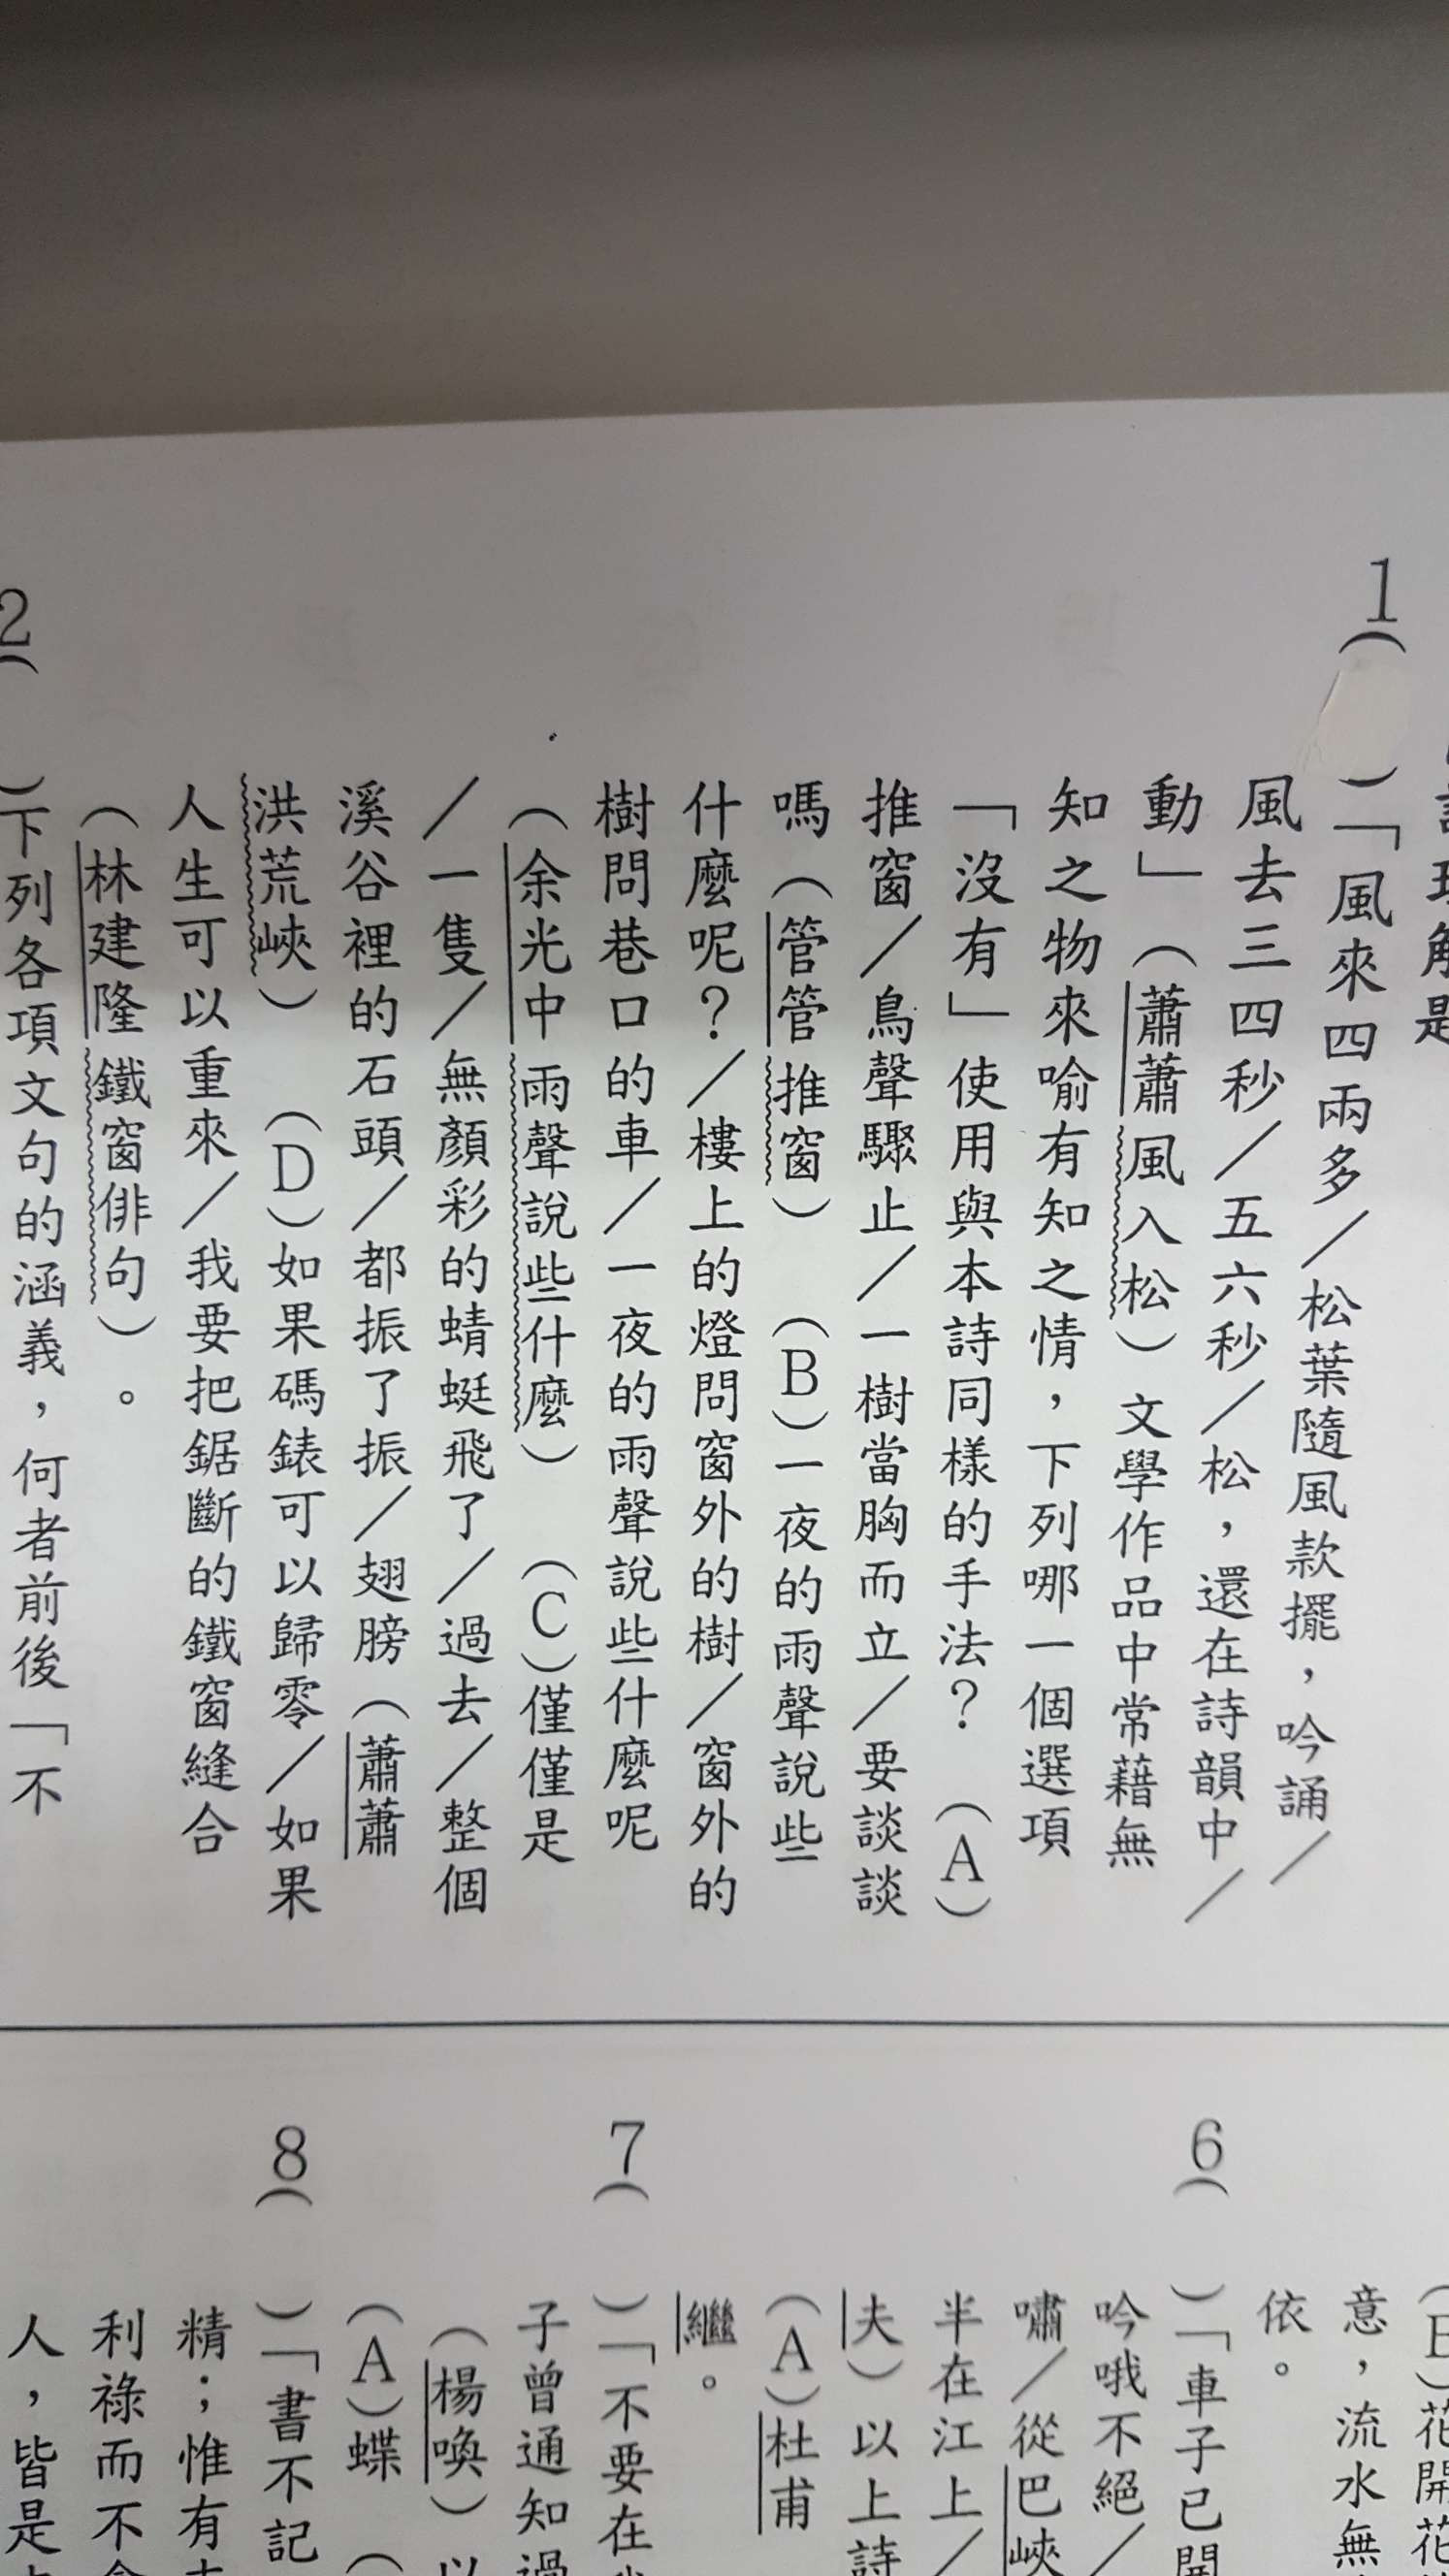 解是
1(
)「風來四兩多／松葉隨風款擺，吟誦／
風去三四秒／五六秒／松，還在詩韻中／
動」（蕭蕭風入松）文學作品中常藉無
知之物來喻有知之情，下列哪一個選項
「沒有」使用與本詩同樣的手法？（A）
推窗／鳥聲驟止／一樹當胸而立／要談談
嗎（管管推窗）（B）一夜的雨聲說些
什麼呢？／樓上的燈問窗外的樹／窗外的
樹問巷口的車／一夜的雨聲說些什麼呢
（余光中雨聲說些什麼）（C）僅僅是
／一隻／無顏彩的蜻蜓飛了／過去／整個
溪谷裡的石頭／都振了振／翅膀（蕭蕭
洪荒峽）（D）如果碼錶可以歸零／如果
人生可以重來／我要把鋸斷的鐵窗縫合
（林建隆鐵窗俳句）。
2(
)下列各項文句的涵義，何者前後「不
花開花
意，流水無
依。
6(
)「車子已開
吟哦不絕／
嘯／從巴峽
半在江上／
夫）以上詩
（A）杜甫
繼。
7(
)「不要在
子曾通知過
（楊喚）以
（A）蝶（
8(
)「書不記
精；惟有
利祿而不
人，皆是